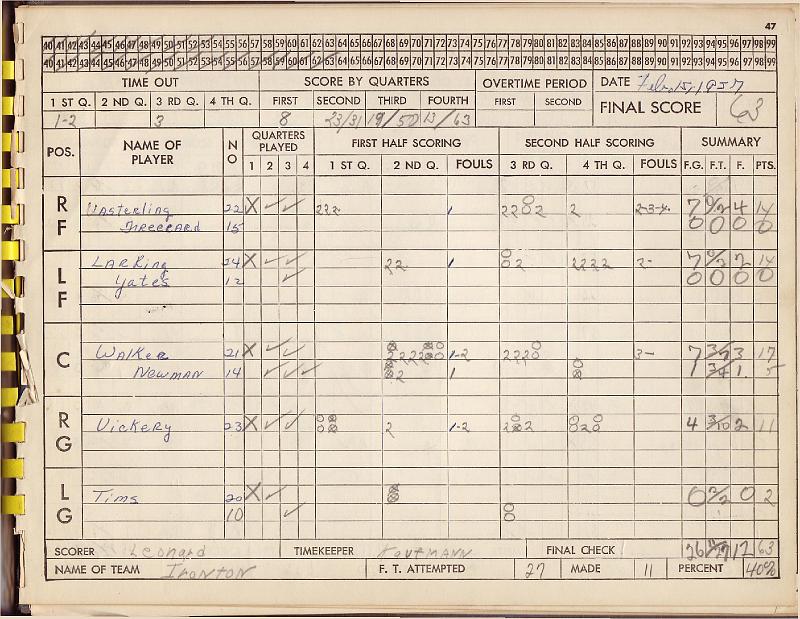 47
40 41 42 43 44 45 46 47 48 49 50 51 52 53 54 55 56 57 58 59 60 61 62 63 64 65 66 67 68 69 70 71 72 73 74 75 76 77 78 79 80 81 82 83 84 85 86 87 88 89 90 91 92 93 94 95 96 97 98 99
40 41 42 43 44 45 46 47 48 49 50 51 52 53 54 55 56 57 58 59 60 61 62 63 64 65 66 67 68 69 70 71 72 73 74 75 76 77 78 79 80 81 82 83 84 85 86 87 88 89 90 91 92 93 94 95 96 97 98 99
TIME OUT SCORE BY QUARTERS OVERTIME PERIOD DATE Feb. 15, 1957
1 ST Q. 2 ND Q. 3 RD Q. 4 TH Q. FIRST SECOND THIRD FOURTH FIRST SECOND FINAL SCORE 63
1-2 3 8 23/31 19/50 13/63
POS. NAME OF PLAYER NO QUARTERS PLAYED 1 2 3 4 FIRST HALF SCORING 1 ST Q. 2 ND Q. FOULS SECOND HALF SCORING 3 RD Q. 4 TH Q. FOULS SUMMARY F.G. F.T. F. PTS.
RF Vasterling 22 X ✓ ✓ 222 1 2202 2 2-3-4 7 0/2 4 14
15 0 0 0 0
LF Larking 24 X ✓ ✓ 22 1 02 2222 2- 7 2 14
Yates 12 ✓ 0 0 0 0
C Walker 21 X ✓ ✓ 1-2 2220 3- 7 3/7 3 17
Newman 14 ✓ ✓ ✓ 2 1 1 3/4 1 5
RG Vickery 23 X ✓ ✓ 2 1-2 4 3/10 2 11
LG Tims 20 X ✓ 0 2/2 0 2
10 ✓
SCORER Leonard TIMEKEEPER Koufmann FINAL CHECK 26 11/27 12 63
NAME OF TEAM Ironton F. T. ATTEMPTED 27 MADE 11 PERCENT 40%